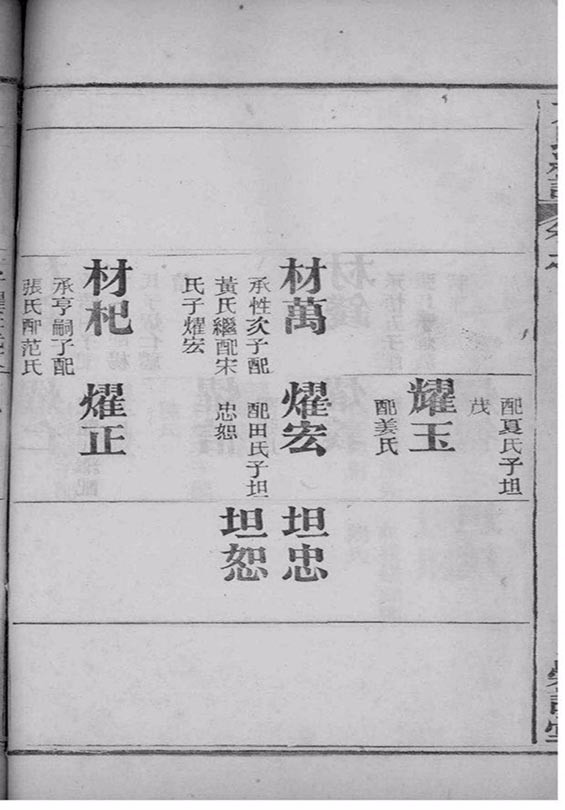 配夏氏子坦
茂
耀玉
配姜氏
材萬
承性次子配
黃氏繼配宋
氏子耀宏
耀宏
配田氏子坦
忠恕
坦忠
坦恕
材杞
承亨嗣子配
張氏配范氏
耀正